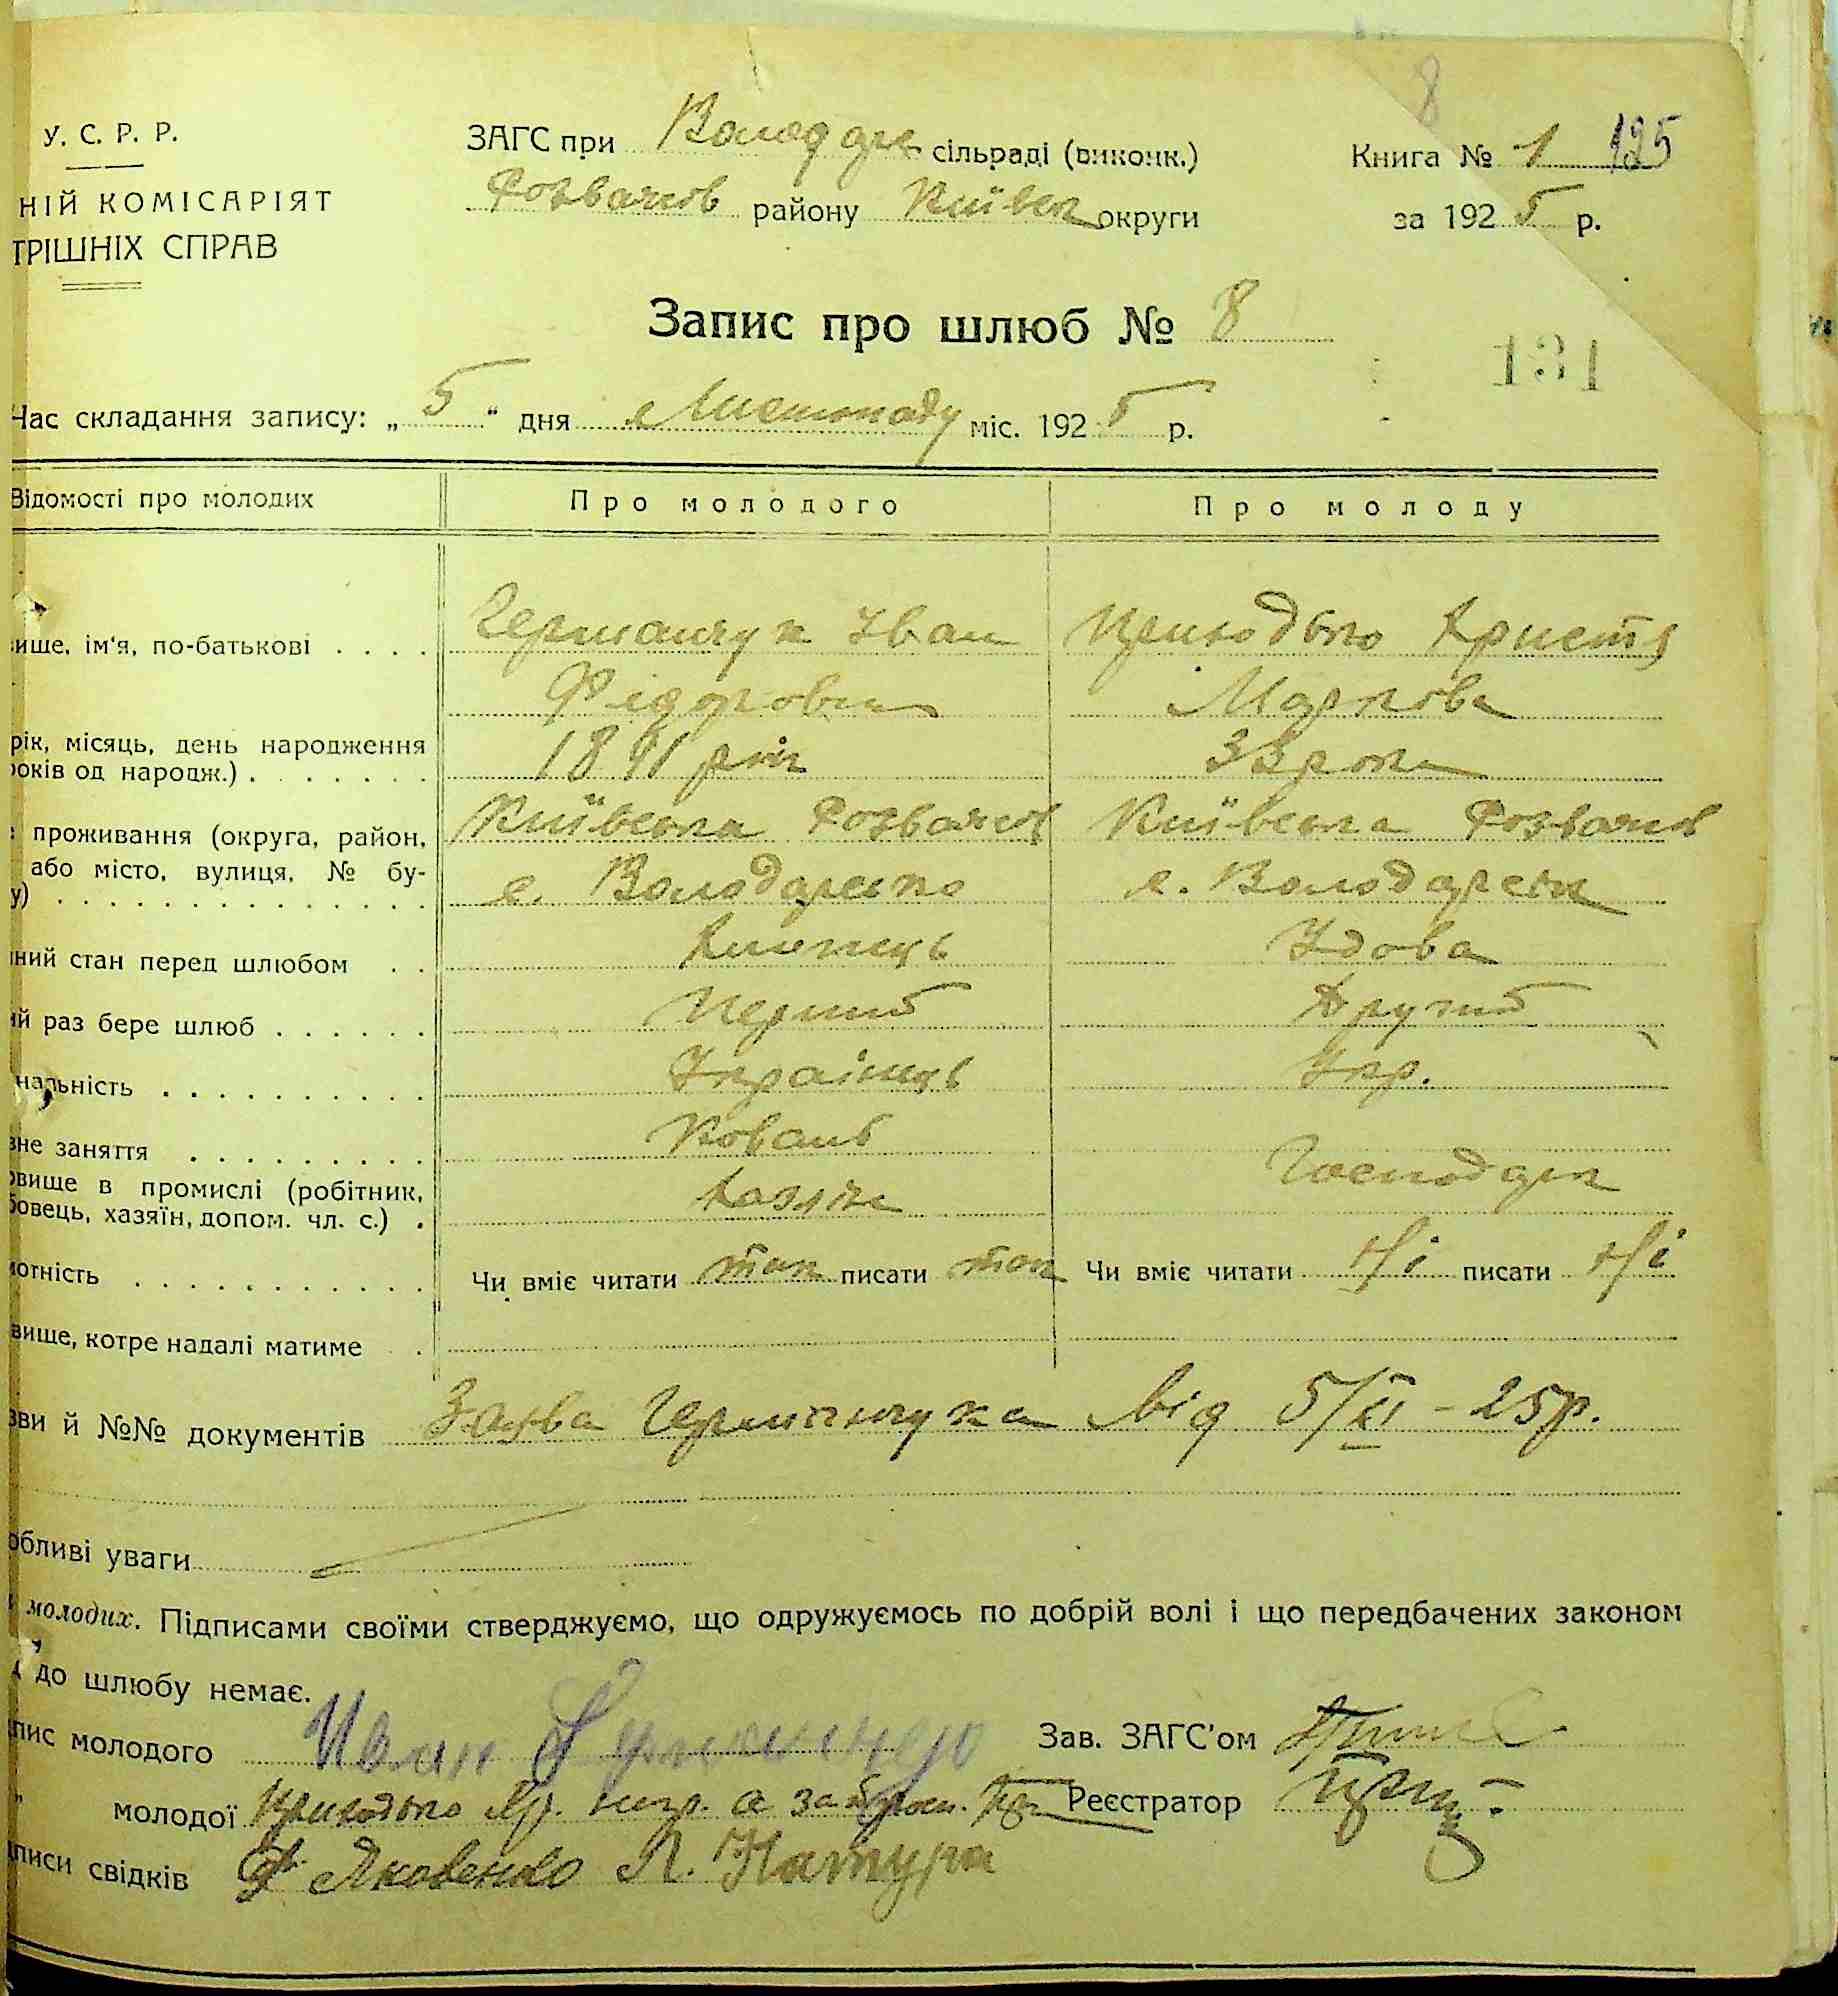 У. С. Р. Р.
НІЙ КОМІСАРІЯТ
ТРІШНІХ СПРАВ
ЗАГС при Володар сільраді (виконк.)
Розважев району Київськ округи
Книга № 1 125
за 1925 р.
8
Запис про шлюб № 8
131
Час складання запису: „5“ дня Листопаду міс. 1925 р.
Відомості про молодих Про молодого Про молоду
вище, ім'я, по-батькові . . . . Германчук Іван Приходько Христя
Фідорович Маркова
рік, місяць, день народження 1891 рік 33 роки
років од народж.) . . . . . . .
проживання (округа, район, Київська Розважев Київська Розважев
або місто, вулиця, № бу- с. Володарська с. Володарськ
у) . . . . . . . . . . . . . .
ний стан перед шлюбом . . Хлопець Удова
ий раз бере шлюб . . . . . . Перший Другий
нальність . . . . . . . . . . Українець Укр.
вне заняття . . . . . . . . . Коваль
овище в промислі (робітник, Хазяїн Господар
бовець, хазяїн, допом. чл. с.) .
мотність . . . . . . . . . . . Чи вміє читати так писати так Чи вміє читати Ні писати Ні
вище, котре надалі матиме .
зви й №№ документів Заява Германчука від 5/XI – 25 р.
обливі уваги
молодих. Підписами своїми стверджуємо, що одружуємось по добрій волі і що передбачених законом
д до шлюбу немає.
пис молодого Иван Зав. ЗАГС'ом
" молодої Приходько Хр. негр. а за Реєстратор
дписи свідків Яковенко Л. Натура